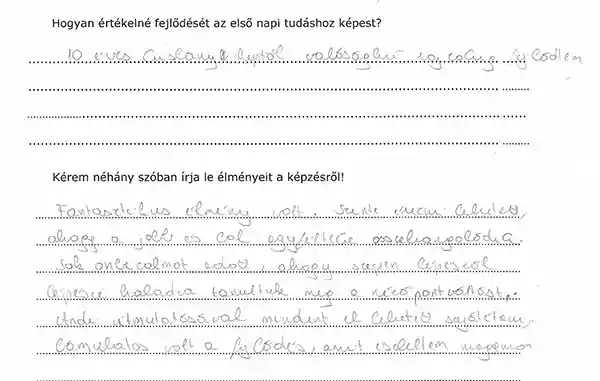 Hogyan értékelné fejlődését az első napi tudáshoz képest?
10 éves kislány képtől valósághű egy fejlődtem
Kérem néhány szóban írja le élményeit a képzésről!
Fantasztikus élmény volt. Szinte érezni lehetett,
ahogy a jobb és bal egyfélteke összehangolódik.
Sok önbizalmat adott, ahogy szépen lépésről
lépésre haladva tanultuk meg a nézőpontváltást,
útmutatásával mindent el lehetett sajátítani,
volt a fejlődés, amit észleltem magamon